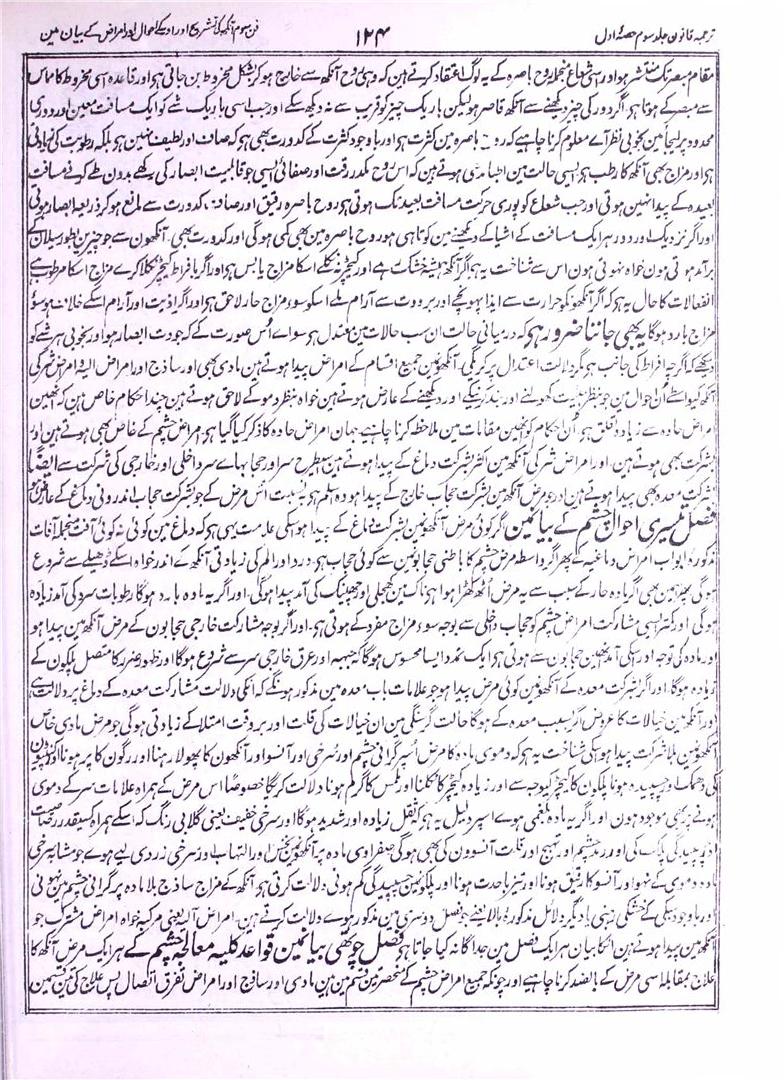 ترجمہ قانون جلد سوم حصۂ اول ۱۲۴ فن سوم آنکھ کی تشریح اور اوسکے احوال اور امراض کے بیان مین
مقام مبصر تک منتشر ہو اور اسی شعاع منجملہ روح باصرہ کے یہ لوگ اعتقاد کرتے ہین کہ وہی روح آنکھ سے خارج ہو کر بشکل مخروط بن جاتی ہو اور قاعدہ اسی مخروط کا مماس
سے مبصر کے ہوتا ہو اگر دور کی چیز دیکھنے سے آنکھ قاصر ہو لیکن باریک چیز کو قریب سے نہ دیکھ سکے اور جب اسی باریک شے کو ایک مسافت معین اور دوری
محدود پر لیجائین بخوبی نظر آے معلوم کرنا چاہیے کہ روح باصرہ مین کثرت ہو اور باوجود کثرت کے کدورت بھی ہو کہ صاف اور لطیف نہین ہو بلکہ رطوبت کی زیادتی
ہو اور مزاج بھی آنکھ کا رطب ہو ایسی حالت مین اطبا مدعی ہوتے ہین کہ اس روح مکدر رقت اور صفائی ایسی جو قابلیت ابصار کی رکھے بدون طے کرنے مسافت
بعیدہ کے پیدا نہین ہوتی اور جب شعاع کو پوری حرکت مسافت بعید تک ہوتی ہو روح باصرہ رقیق اور صاف کدورت سے مانع ہو کر ذریعہ ابصار ہوتی
اور اگر نزدیک اور دور ہر ایک مسافت کے اشیا کے دیکھنے مین کوتاہی ہو روح باصرہ مین بھی کمی ہوگی اور کدورت بھی۔ آنکھون سے جو چیزین بطور سیلان کے
برآمد ہوتی ہون خواہ نہوتی ہون اس سے شناخت یہ ہو اگر آنکھ ہمیشہ خشک رہے اور کیچڑ نہ نکلے اسکا مزاج یابس ہو اور اگر یا فراط کیچڑ نکلا کرے مزاج اسکا مرطوب ہے
انفعالات کا حال یہ ہو کہ اگر آنکھ کو حرارت سے ایذا پہونچے اور برودت سے آرام ملے اسکو سوء مزاج حار لاحق ہو اور اگر اذیت اور آرام اسکے خلاف ہو سوء
مزاج بارد ہوگا یہ بھی جاننا ضرور ہو کہ درمیانی حالت ان سب حالات مین معتدل ہو سواے اُس صورت کے کہ جودت ابصار ہو اور بخوبی ہر شے کو
دیکھے کہ اگرچہ افراط کی جانب ہو مگر دلالت اعتدال پر کریگی۔ آنکھ مین جمیع اقسام کے امراض پیدا ہوتے ہین مادی بھی اور ساذج اور امراض آلیہ اور امراض مشترکہ کی
آنکھ کیواسطے اُن احوال مین جو بنظر کھولنے اور بند کرنیکے اور دیکھنے کے عارض ہوتے ہین خواہ منظر دموع کے لاحق ہوتے ہین چند احکام خاص ہین کہ نھین
امراض حادہ سے زیادہ تعلق ہو۔ اُن احکام کو انھین مقامات مین ملاحظہ کرنا چاہیے جہان امراض حادہ کا ذکر کیا گیا ہو۔ امراض چشم کے خاص بھی ہوتے ہین اور
بشرکت بھی ہوتے ہین۔ اور امراض شرکی آنکھ مین اکثر بشرکت دماغ کے پیدا ہوتے ہین اسیطرح سر اور حجابہاے سر داخلی اور خارجی کی شرکت سے ایضاً
بشرکت معدہ بھی پیدا ہوتے ہین اور جو مرض آنکھ مین بشرکت حجاب خارج کے پیدا ہو وہ اسلم ہو بہ نسبت اُس مرض کے جو بشرکت حجاب اندرونی دماغ کے عارض ہو
فصل تیسری احوال چشم کے بیانمین اگر کوئی مرض آنکھ مین بشرکت دماغ کے پیدا ہو اسکی علامت یہی ہو کہ دماغ مین کوئی نہ کوئی آفت منجملہ آفات
مذکورہ ابواب امراض دماغیہ کے پھر اگر واسطہ مرض چشم کا باطنی حجابونمین سے کوئی حجاب ہو۔ درد اور الم کی زیادتی آنکھ کے اندر خواہ اسکے ڈھیلے سے شروع
ہوگی پھر یہین بھی اگر مادہ حار کے سبب سے یہ مرض اُٹھ کھڑا ہوا ہو ناک مین کھجلی اور چھینک کی آمد پیدا ہوگی۔ اور اگر یہ مادہ بارد ہوگا رطوبات سرد کی آمد زیادہ
ہوگی اور کمتر ایسی مشارکت امراض چشم کو حجاب داخلی سے بوجہ سوء مزاج مفرد کے ہوتی ہو۔ اور اگر بوجہ مشارکت خارجی حجابون کے مرض آنکھ مین پیدا ہو
اور مادہ کی توجہ اور اسکی آمد انھین حجابون سے ہوتی ہو ایک تمدد ایسا محسوس ہوگا کہ جبہہ اور عرق خارجی سر سے شروع ہوگا اور ظہور ضرر کا متصل پلکون کے
زیادہ ہوگا۔ اور اگر بشرکت معدہ کے آنکھ مین کوئی مرض پیدا ہو جو علامات باب معدہ مین مذکور ہونگے کہ انکی دلالت مشارکت معدہ کے دماغ پر دلالت ہے
اور آنکھ مین خیالات کا عروض اگر بسبب معدہ کے ہوگا حالت گرسنگی مین ان خیالات کی قلت اور بروقت امتلا کے زیادتی ہوگی جو مرض مادی خاص
آنکھ مین بلا شرکت پیدا ہو اسکی شناخت یہ ہو کہ دموی مادہ کا مرض اُسپر گرانی چشم اور سُرخی اور آنسو اور آنکھون کا پھولا رہنا اور رگون کا پُر ہونا اور کنپٹیون
کی دھمک اور چسپیدہ ہونا پلکون کا کیچڑ کیوجہ سے اور زیادہ کیچڑ کا نکلنا اور ملمس کا گرم ہونا دلالت کریگا خصوصاً اس مرض کے ہمراہ علامات سر کے دموی
ہونے پر بھی موجود ہون اور اگر یہ مادہ بلغمی ہوے اسپر دلیل یہ ہو کہ ثقل زیادہ اور شدید ہوگا اور سرخی خفیف یعنی گلابی رنگ کہ اسکے ہمراہ کسیقدر رصاصیت
اور چسپیدگی پلک کی اور رمد چشم اور تہیج اور قلت آنسوون کی بھی ہوگی صفراوی مادہ پر آنکھ مین نخس اور التہاب اور سرخی زردی لیے ہوے جو مشابہ سرخی
مادہ دموی کے نہو اور آنسو کا رقیق ہونا اور تیز باحدت ہونا اور پلکونمین چسپیدگی کم ہونی دلالت کرتی ہو آنکھ کے مزاج ساذج بلا مادہ پر گرانی چشم مین نہونی
اور باوجود سبکی کے خشکی رہنی یا دیگر دلائل مذکورہ بالا یعنے جو فصل دوسری مین مذکور ہوے دلالت کرتے ہین۔ امراض آلی یعنی مرکبہ خواہ امراض مشترک جو
آنکھ مین پیدا ہوتے ہین انکا بیان ہر ایک فصل مین جداگانہ کیا جاتا ہو فصل چوتھی بیانمین قواعد کلیہ معالجہ چشم کے ہر ایک مرض آنکھ کا
علاج بمقابلہ اسی مرض کے بالضد کرنا چاہیے اور چونکہ جمیع امراض چشم کے منحصر تین قسم مین ہین مادی اور ساذج اور امراض تفرق اتصال پس علاج کی تین قسمین